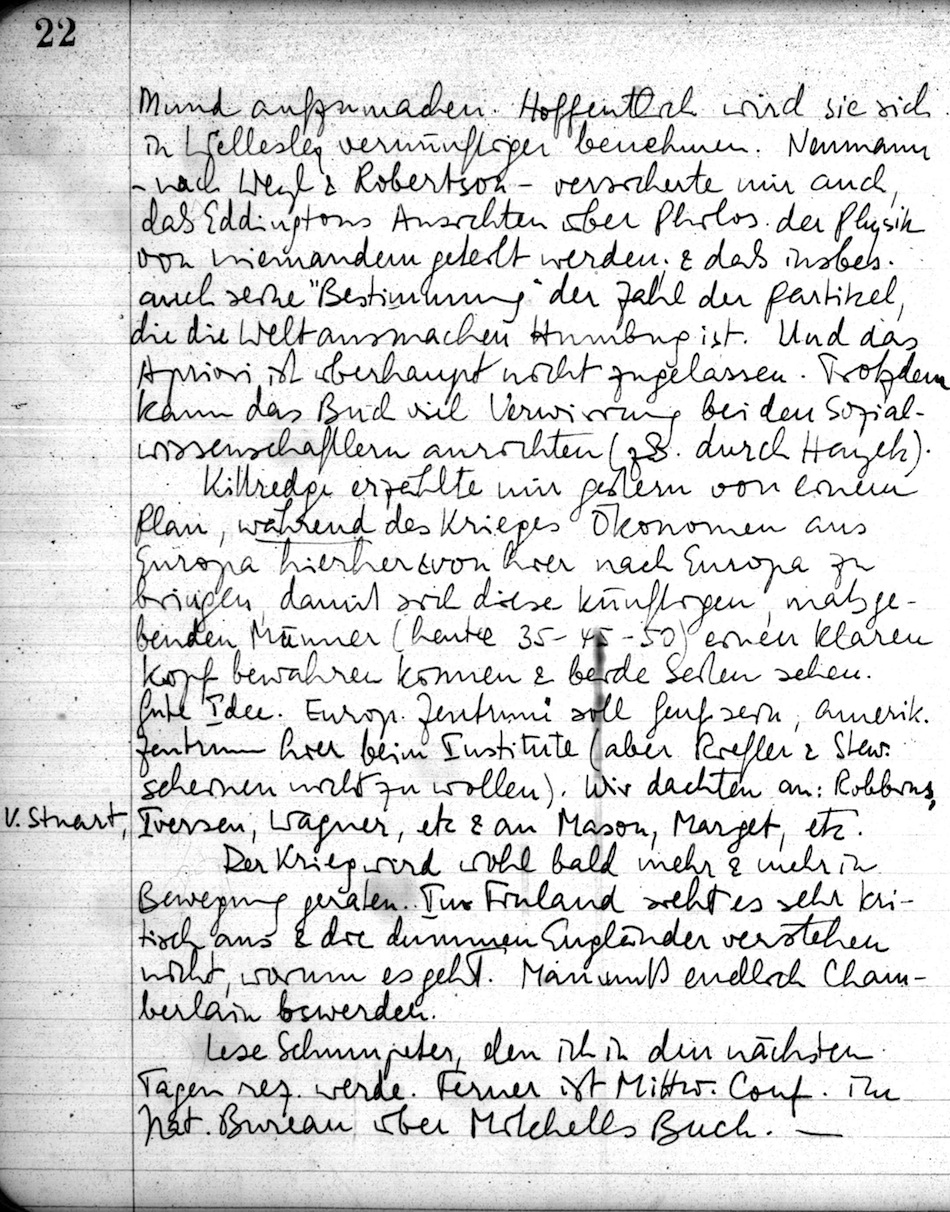 22
Mund aufzumachen. Hoffentlich wird sie sich
in Wellesley vernünftiger benehmen. Neumann
- nach Weyl & Robertson - versicherte mir auch,
daß Eddingtons Ansichten über Philos. der Physik
von niemandem geteilt werden. & daß insbes.
auch seine "Bestimmung" der Zahl der Partikel,
die die Welt ausmachen Humbug ist. Und das
Apriori ist überhaupt nicht zugelassen. Trotzdem
kann das Buch viel Verwirrung bei den Sozial-
wissenschaftlern anrichten (z.B. durch Hayek).
Kittredge erzählte mir gestern von einem
Plan, während des Krieges Ökonomen aus
Europa hierher & von hier nach Europa zu
bringen, damit sich diese künftigen, maßge-
benden Männer (heute 35-45-50) einen klaren
Kopf bewahren können & beide Seiten sehen.
Gute Idee. Europ. Zentrum soll Genf sein, amerik.
Zentrum hier beim Institute (aber Riefler & Stew.
scheinen nicht zu wollen). Wir dachten an: Robbins,
V. Stuart, Iversen, Wagner, etc & an Mason, Marget, etc.
Der Krieg wird wohl bald mehr & mehr in
Bewegung geraten. In Finland sieht es sehr kri-
tisch aus & die dummen Engländer verstehen
nicht, worum es geht. Man muß endlich Cham-
berlain loswerden.
Lese Schumpeter, den ich in den nächsten
Tagen rez. werde. Ferner ist Mittw. Conf. im
Nat. Bureau über Mitchells Buch. —